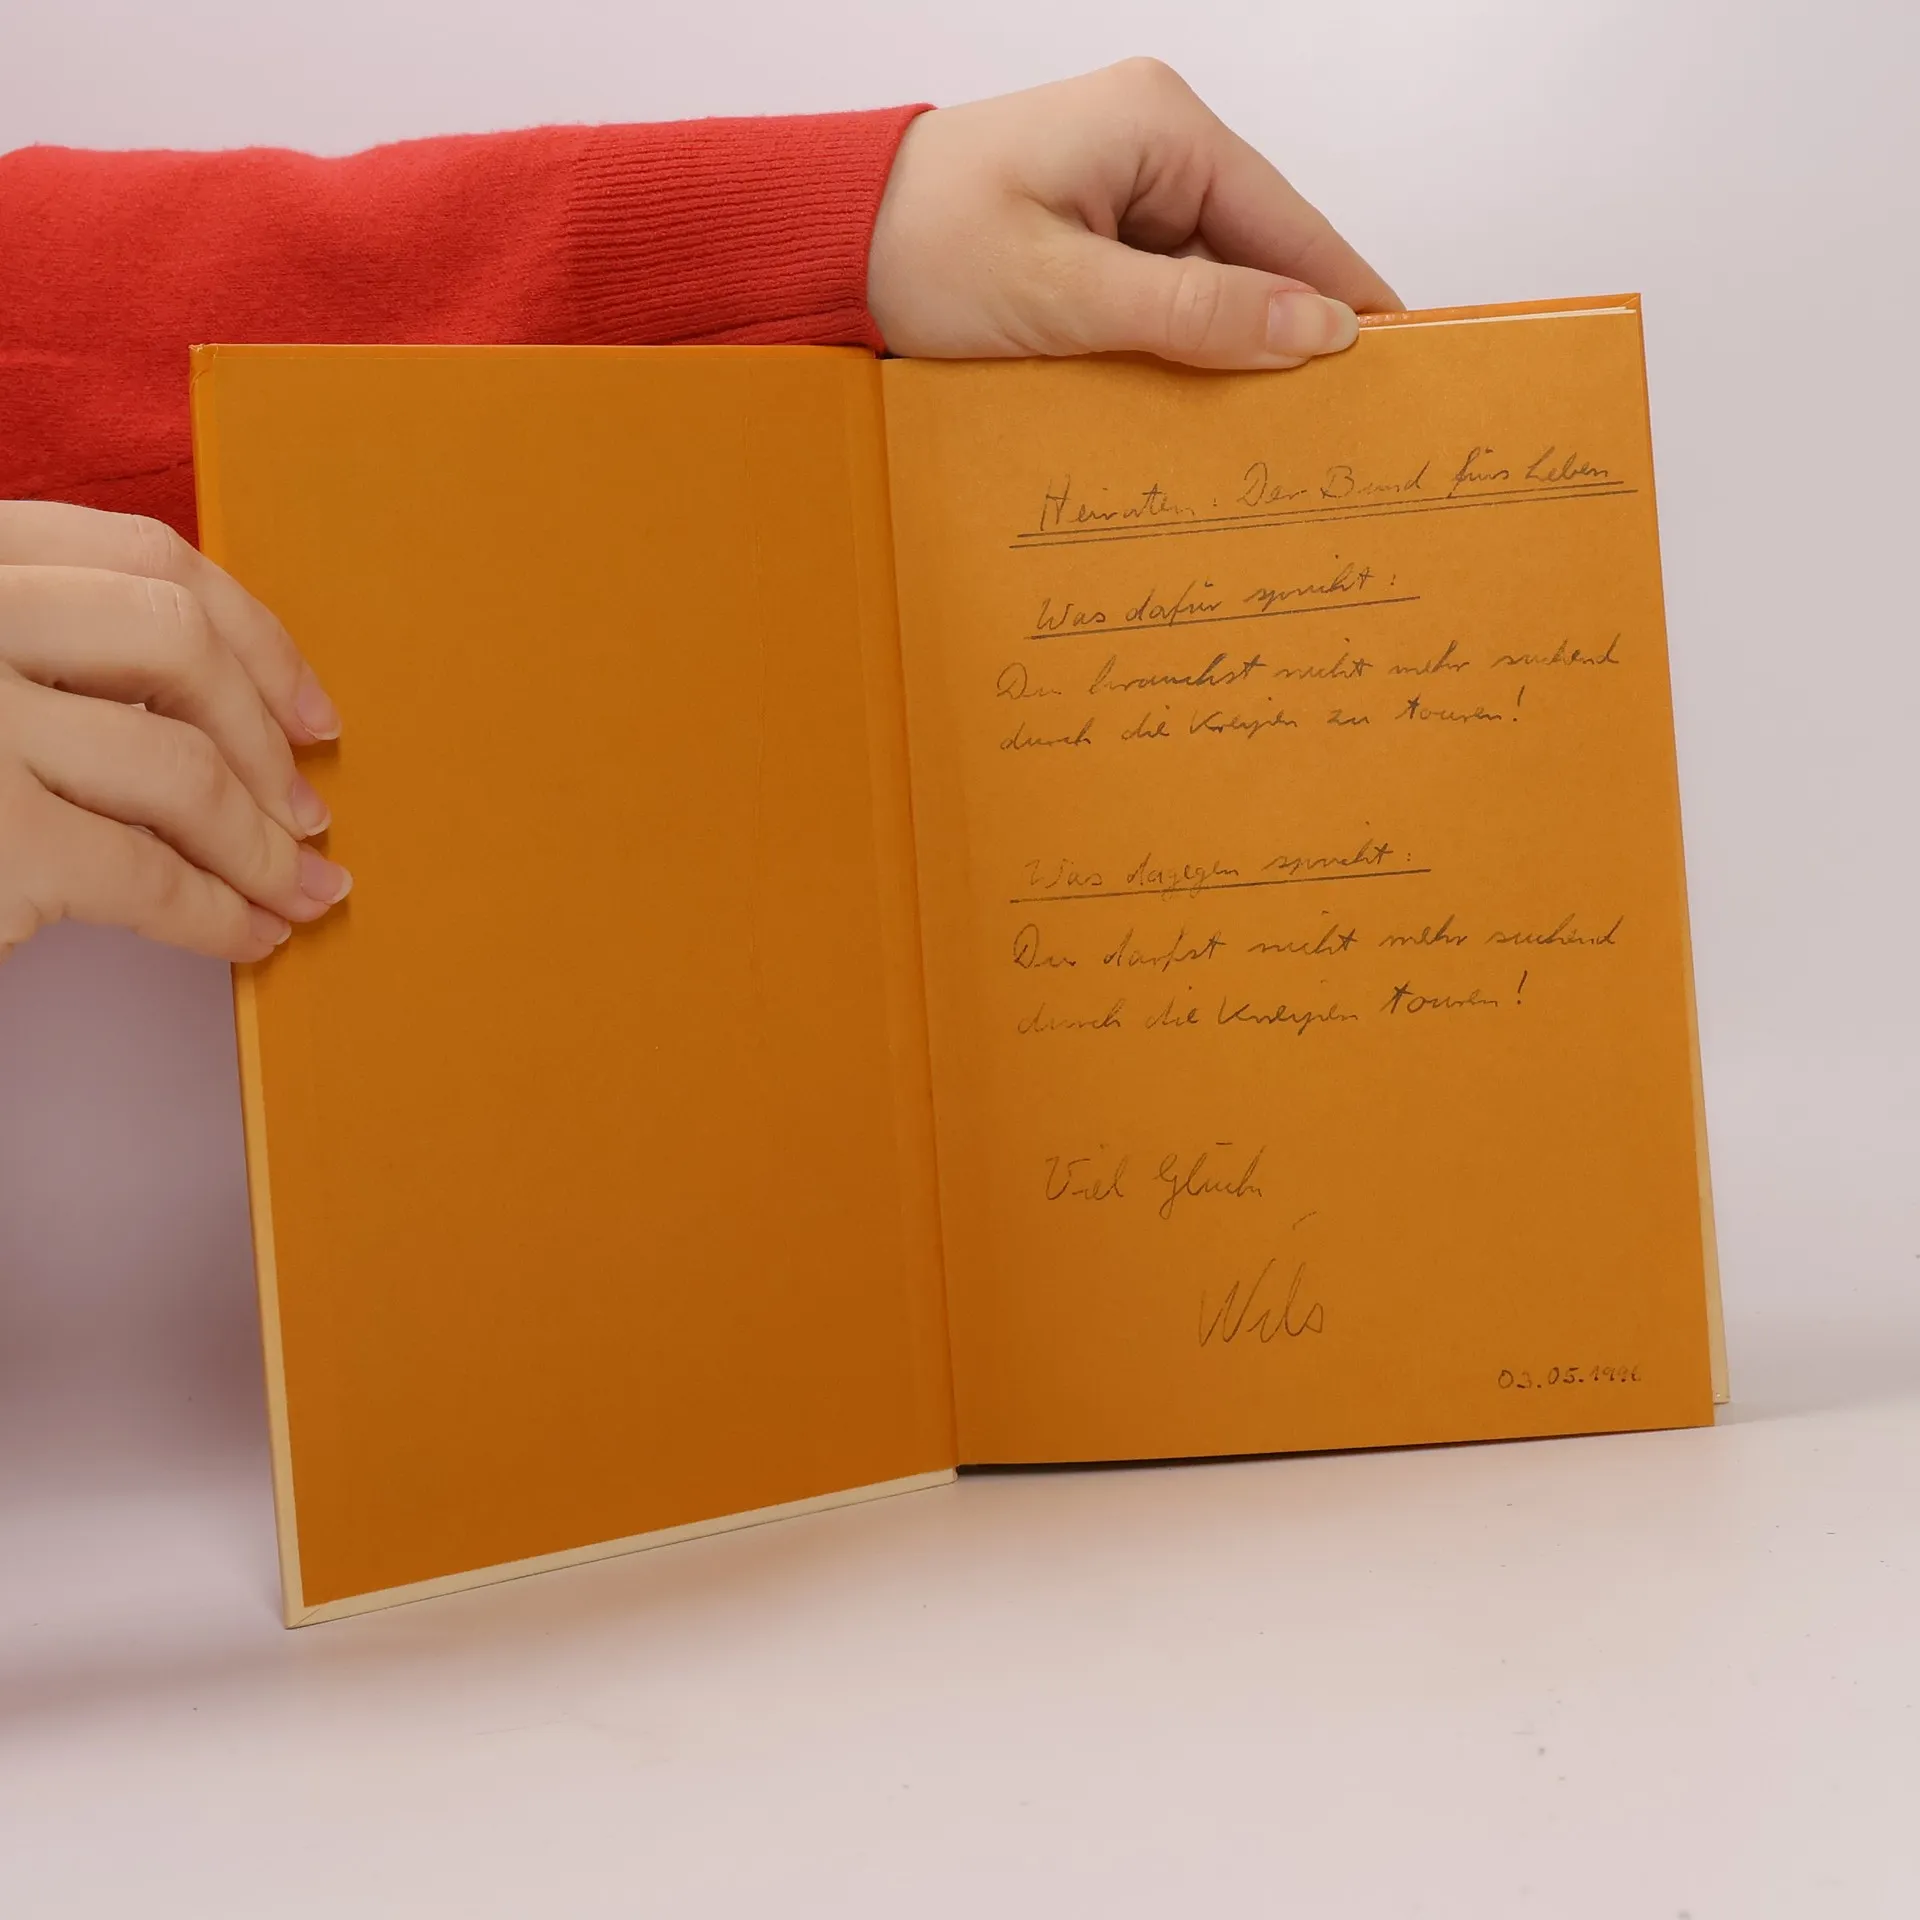 Heiraten: Der Bund fürs Leben
Was dafür spricht:
Du brauchst nicht mehr suchend
durch die Kneipen zu touren!
Was dagegen spricht:
Du darfst nicht mehr suchend
durch die Kneipen touren!
Viel Glück
03.05.1996